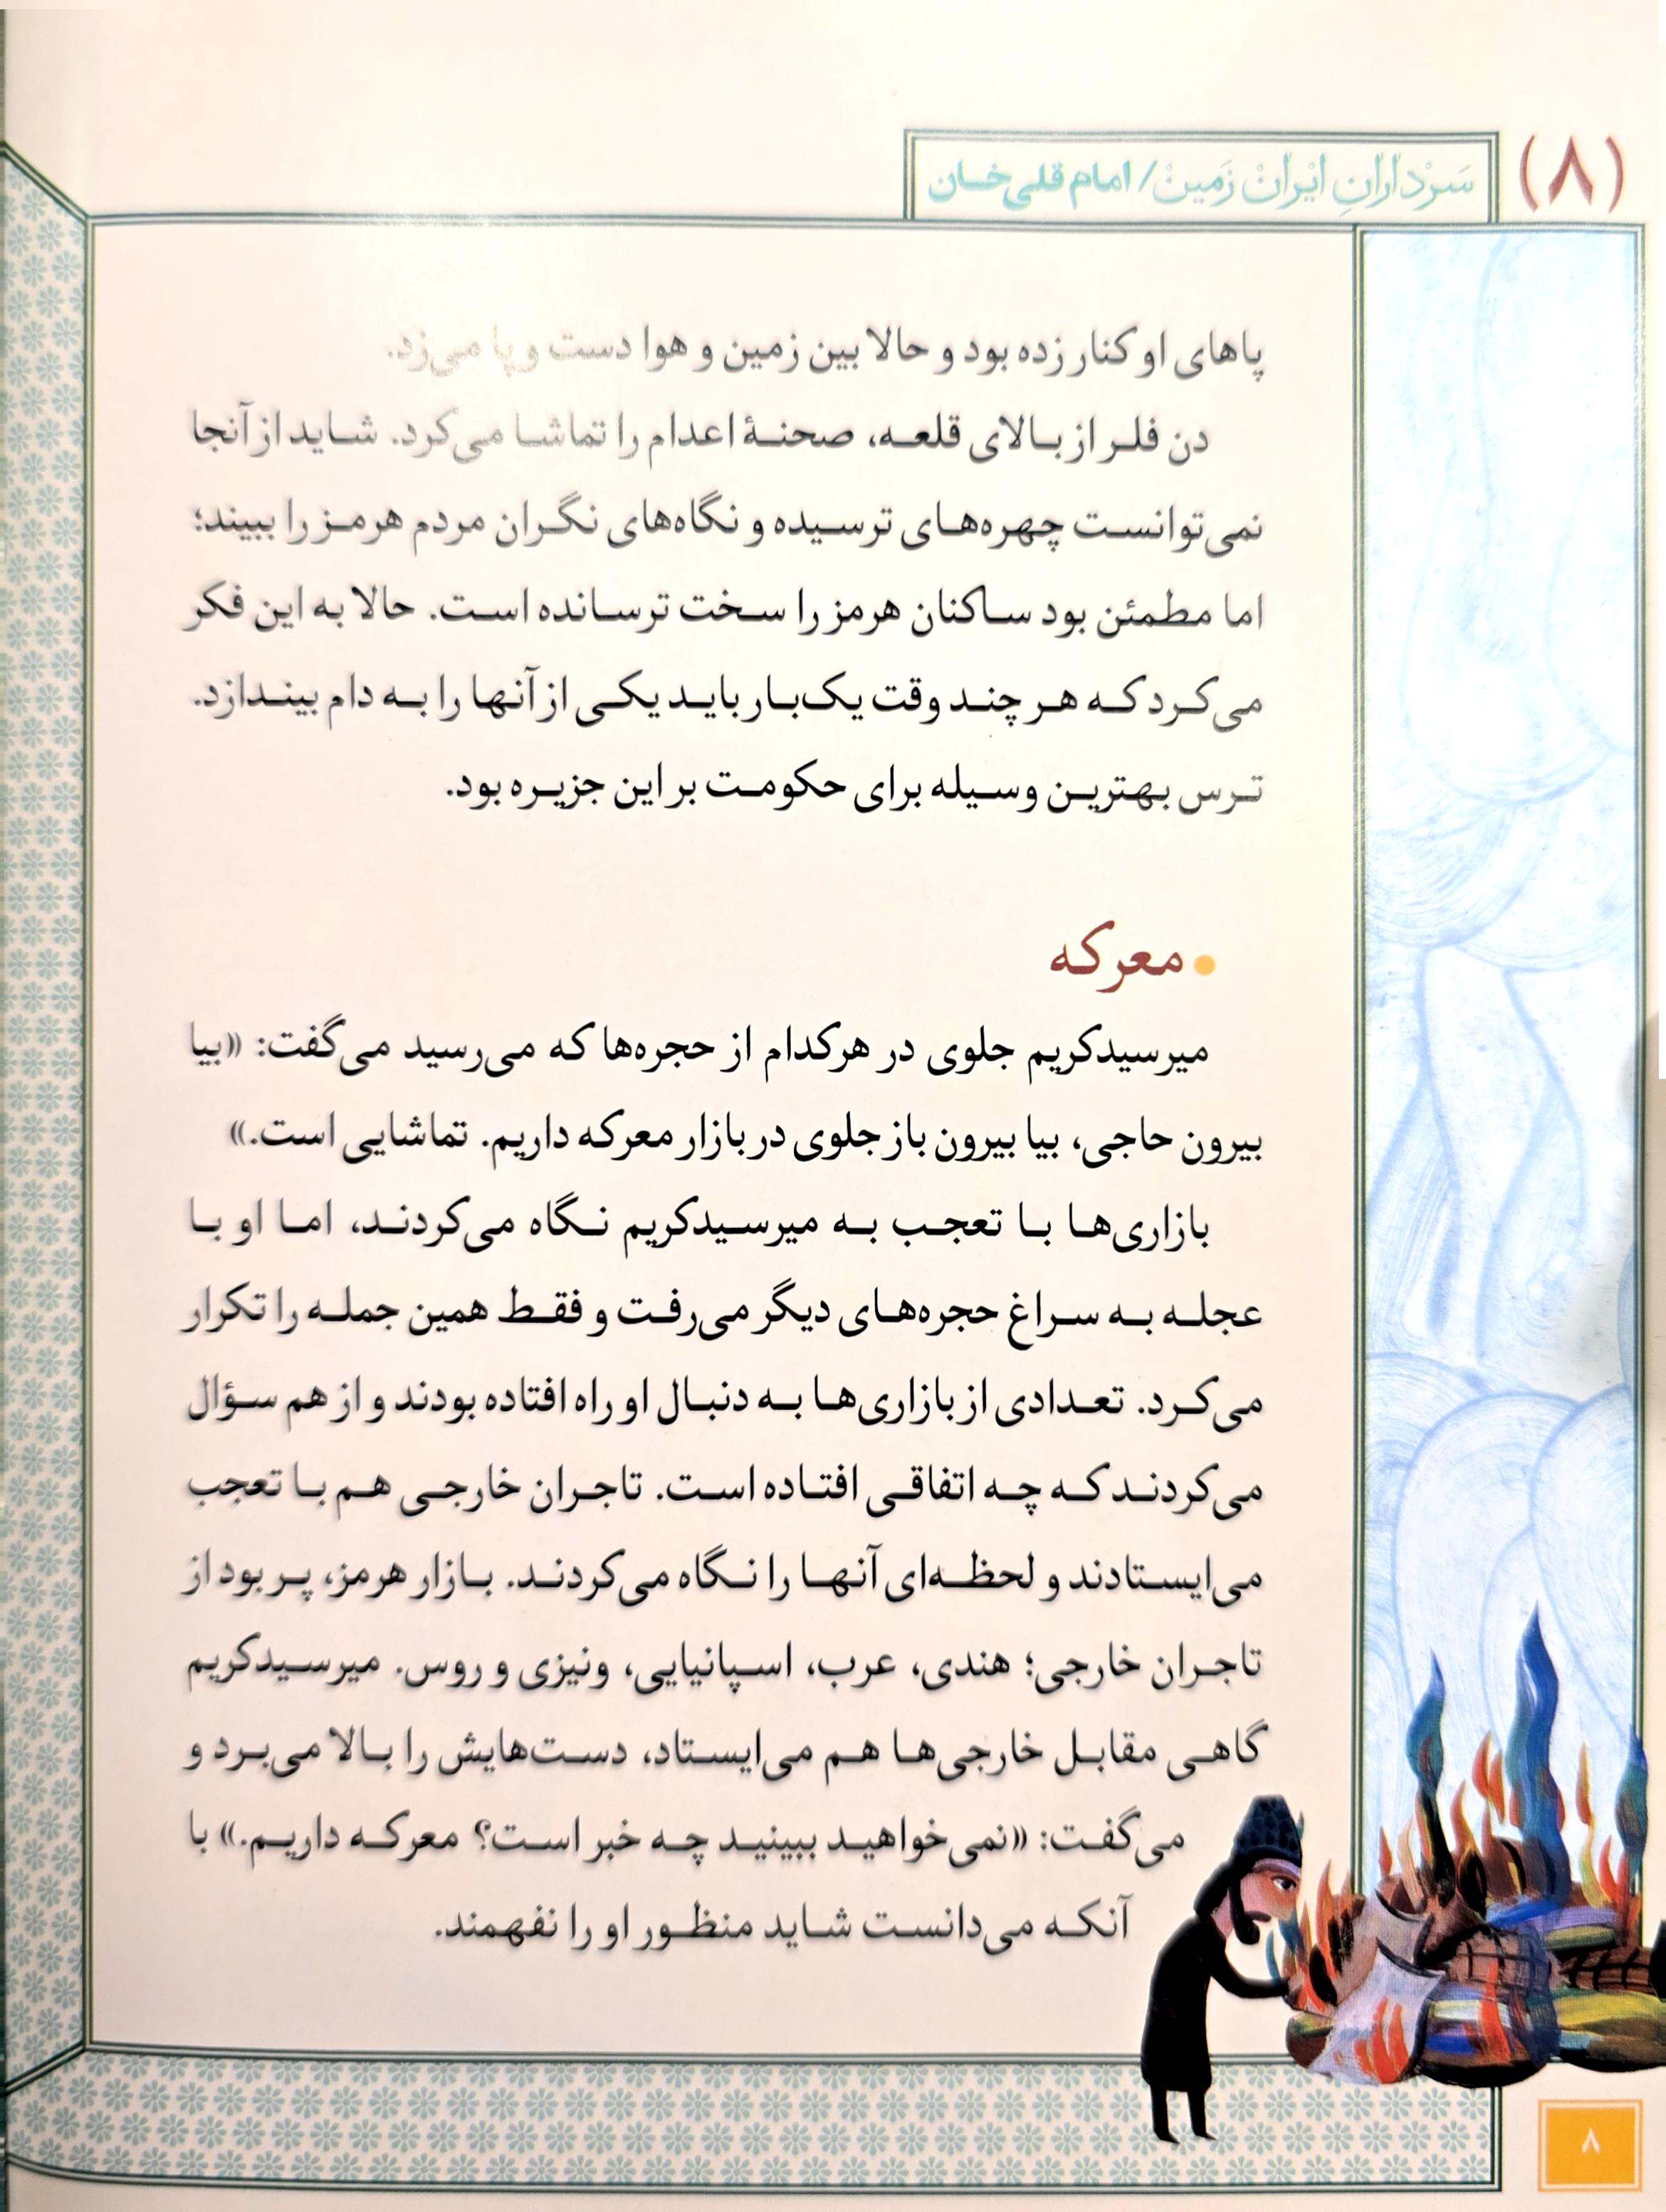 (۸)
سَرْدارانِ ایْرانْ زَمینْ/ امام قلی‌خان
پاهای او کنار زده بود و حالا بین زمین و هوا دست و پا می‌زد.
دن فلر از بالای قلعه، صحنهٔ اعدام را تماشا می‌کرد. شاید از آنجا
نمی‌توانست چهره‌های ترسیده و نگاه‌های نگران مردم هرمز را ببیند؛
اما مطمئن بود ساکنان هرمز را سخت ترسانده است. حالا به این فکر
می‌کرد که هر چند وقت یک‌بار باید یکی از آنها را به دام بیندازد.
ترس بهترین وسیله برای حکومت بر این جزیره بود.
• معرکه
میرسیدکریم جلوی در هرکدام از حجره‌ها که می‌رسید می‌گفت: «بیا
بیرون حاجی، بیا بیرون باز جلوی در بازار معرکه داریم. تماشایی است.»
بازاری‌ها با تعجب به میرسیدکریم نگاه می‌کردند، اما او با
عجله به سراغ حجره‌های دیگر می‌رفت و فقط همین جمله را تکرار
می‌کرد. تعدادی از بازاری‌ها به دنبال او راه افتاده بودند و از هم سؤال
می‌کردند که چه اتفاقی افتاده است. تاجران خارجی هم با تعجب
می‌ایستادند و لحظه‌ای آنها را نگاه می‌کردند. بازار هرمز، پر بود از
تاجران خارجی؛ هندی، عرب، اسپانیایی، ونیزی و روس. میرسیدکریم
گاهی مقابل خارجی‌ها هم می‌ایستاد، دست‌هایش را بالا می‌برد و
می‌گفت: «نمی‌خواهید ببینید چه خبر است؟ معرکه داریم.» با
آنکه می‌دانست شاید منظور او را نفهمند.
۸